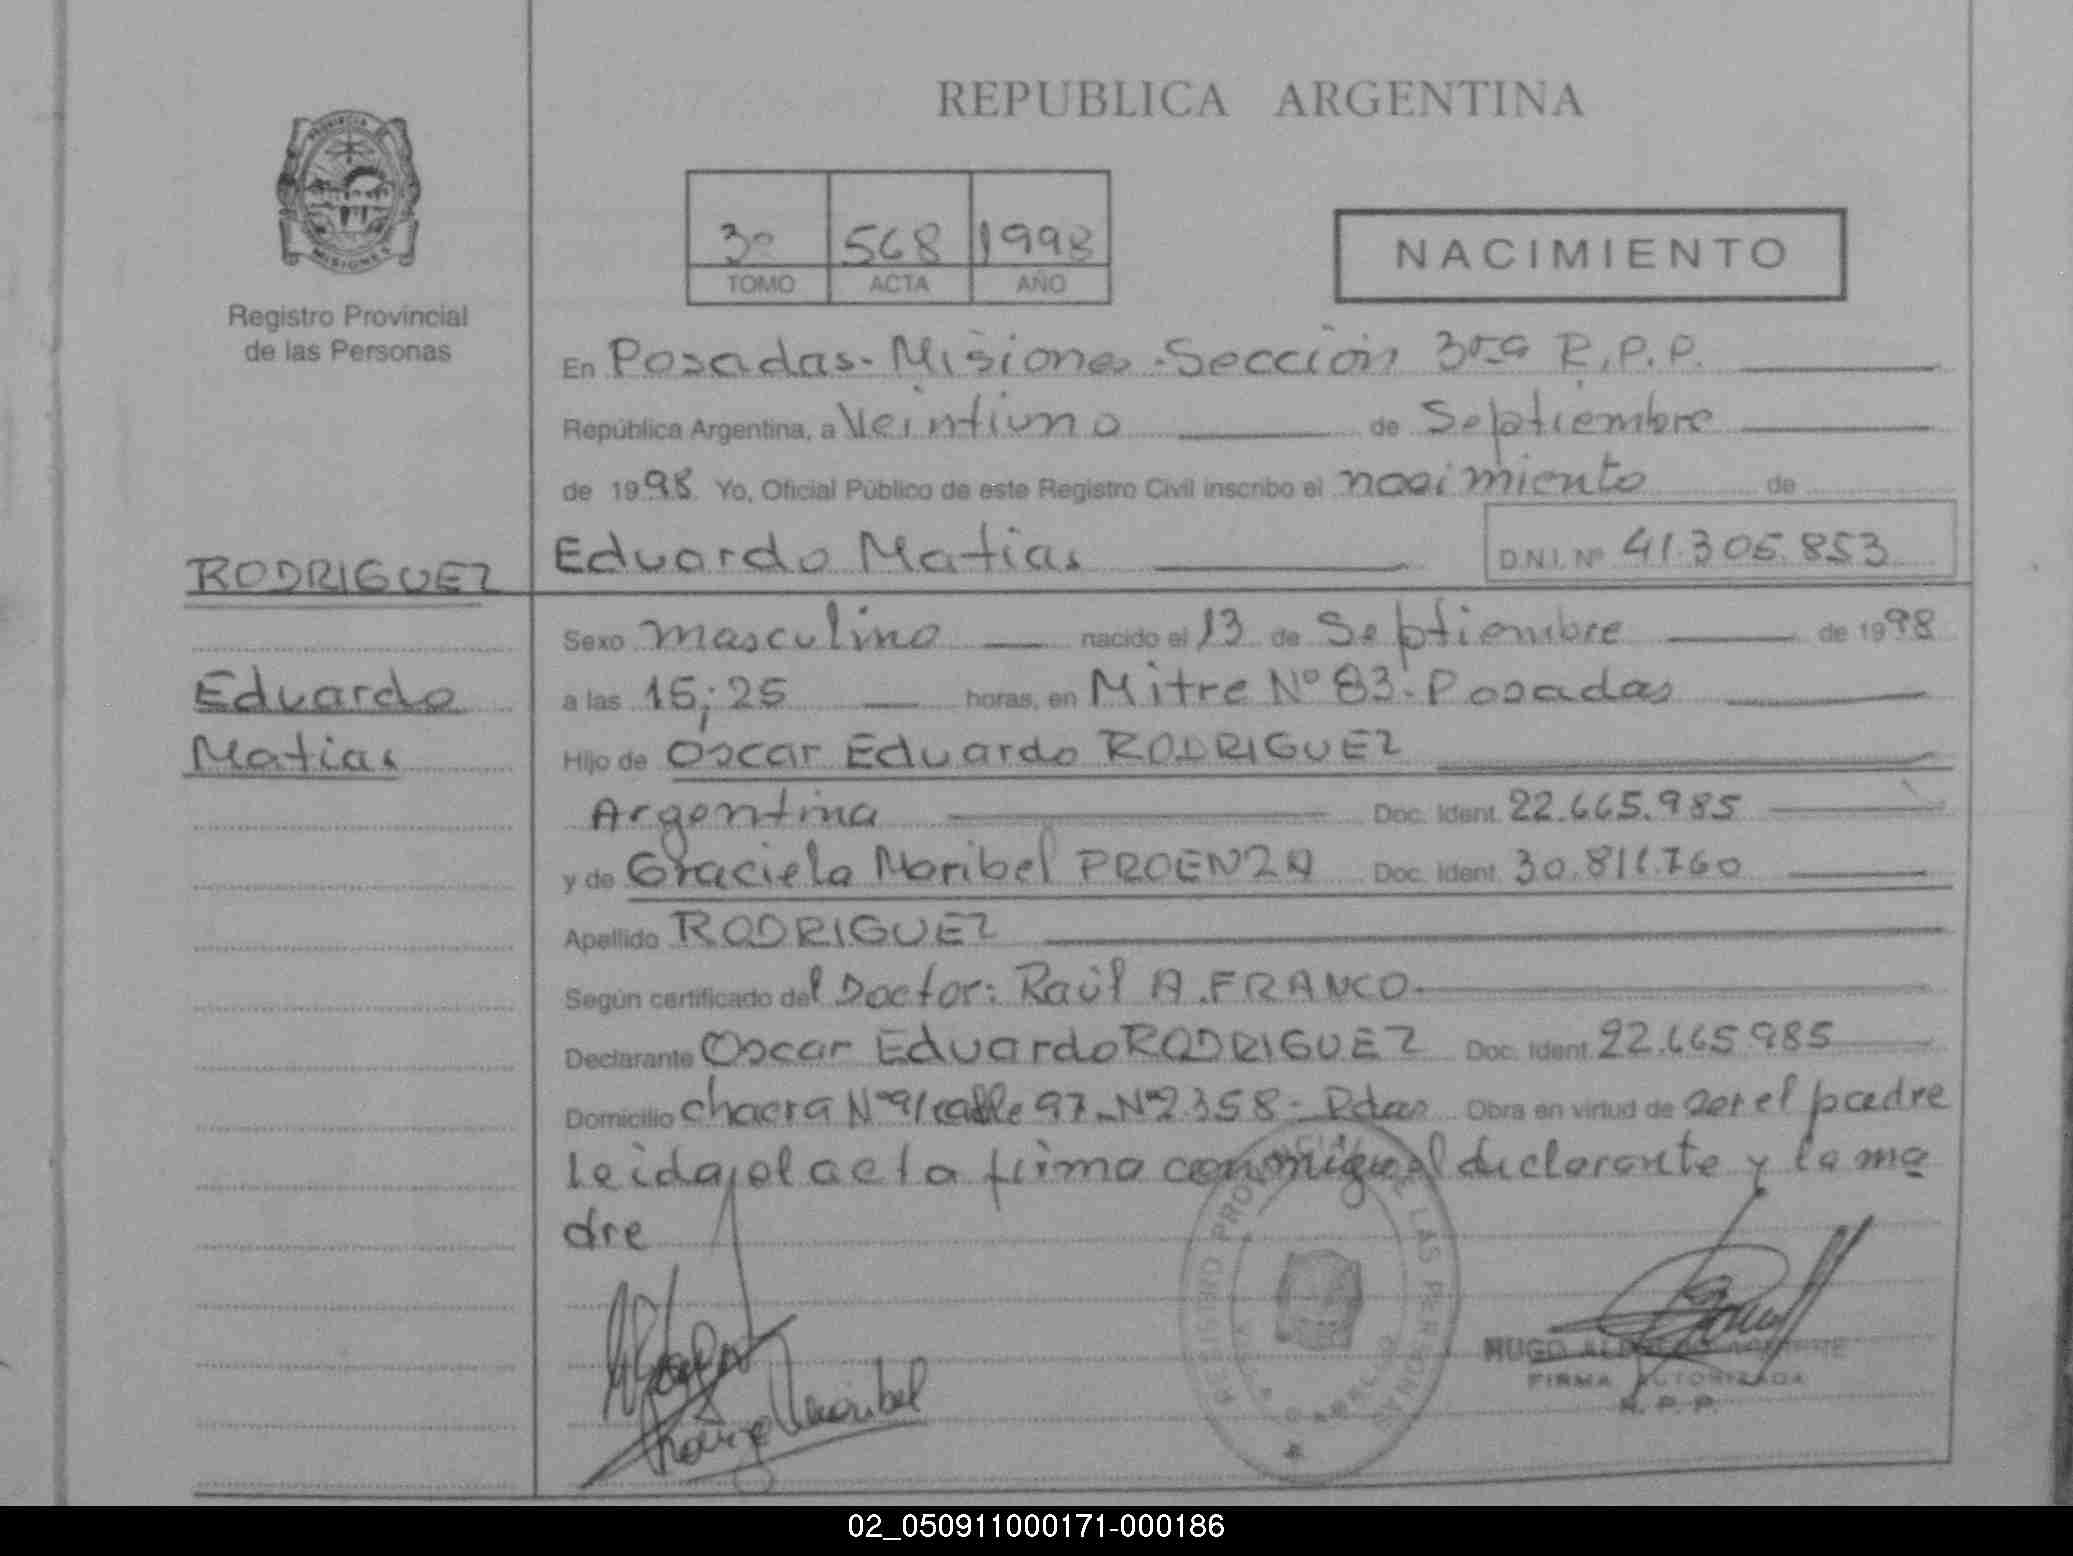 REPUBLICA ARGENTINA
PROVINCIA DE MISIONES
Registro Provincial
de las Personas
3º 568 1998
TOMO ACTA AÑO
NACIMIENTO
En Posadas - Misiones - Sección 3ra R.P.P.
República Argentina, a Veintiuno de Septiembre
de 1998 Yo, Oficial Público de este Registro Civil inscribo el nacimiento de
RODRIGUEZ
Eduardo Matias
Eduardo Matias D.N.I. Nº 41.305.853
Sexo masculino nacido el 13 de Septiembre de 1998
a las 15;25 horas, en Mitre Nº 83. Posadas
Hijo de Oscar Eduardo RODRIGUEZ
Argentina Doc. Ident. 22.665.985
y de Graciela Maribel PROENZA Doc. Ident. 30.811.760
Apellido RODRIGUEZ
Según certificado del Doctor: Raúl A. FRANCO
Declarante Oscar Eduardo RODRIGUEZ Doc. Ident. 22.665.985
Domicilio chacra Nº 91 calle 97 - Nº 2358 - Pdas Obra en virtud de ser el padre
Leida el acta firma conmigo el declarante y la ma
dre
Maribel
REGISTRO PROVINCIAL DE LAS PERSONAS
HUGO
FIRMA AUTORIZADA
R.P.P.
02_050911000171-000186